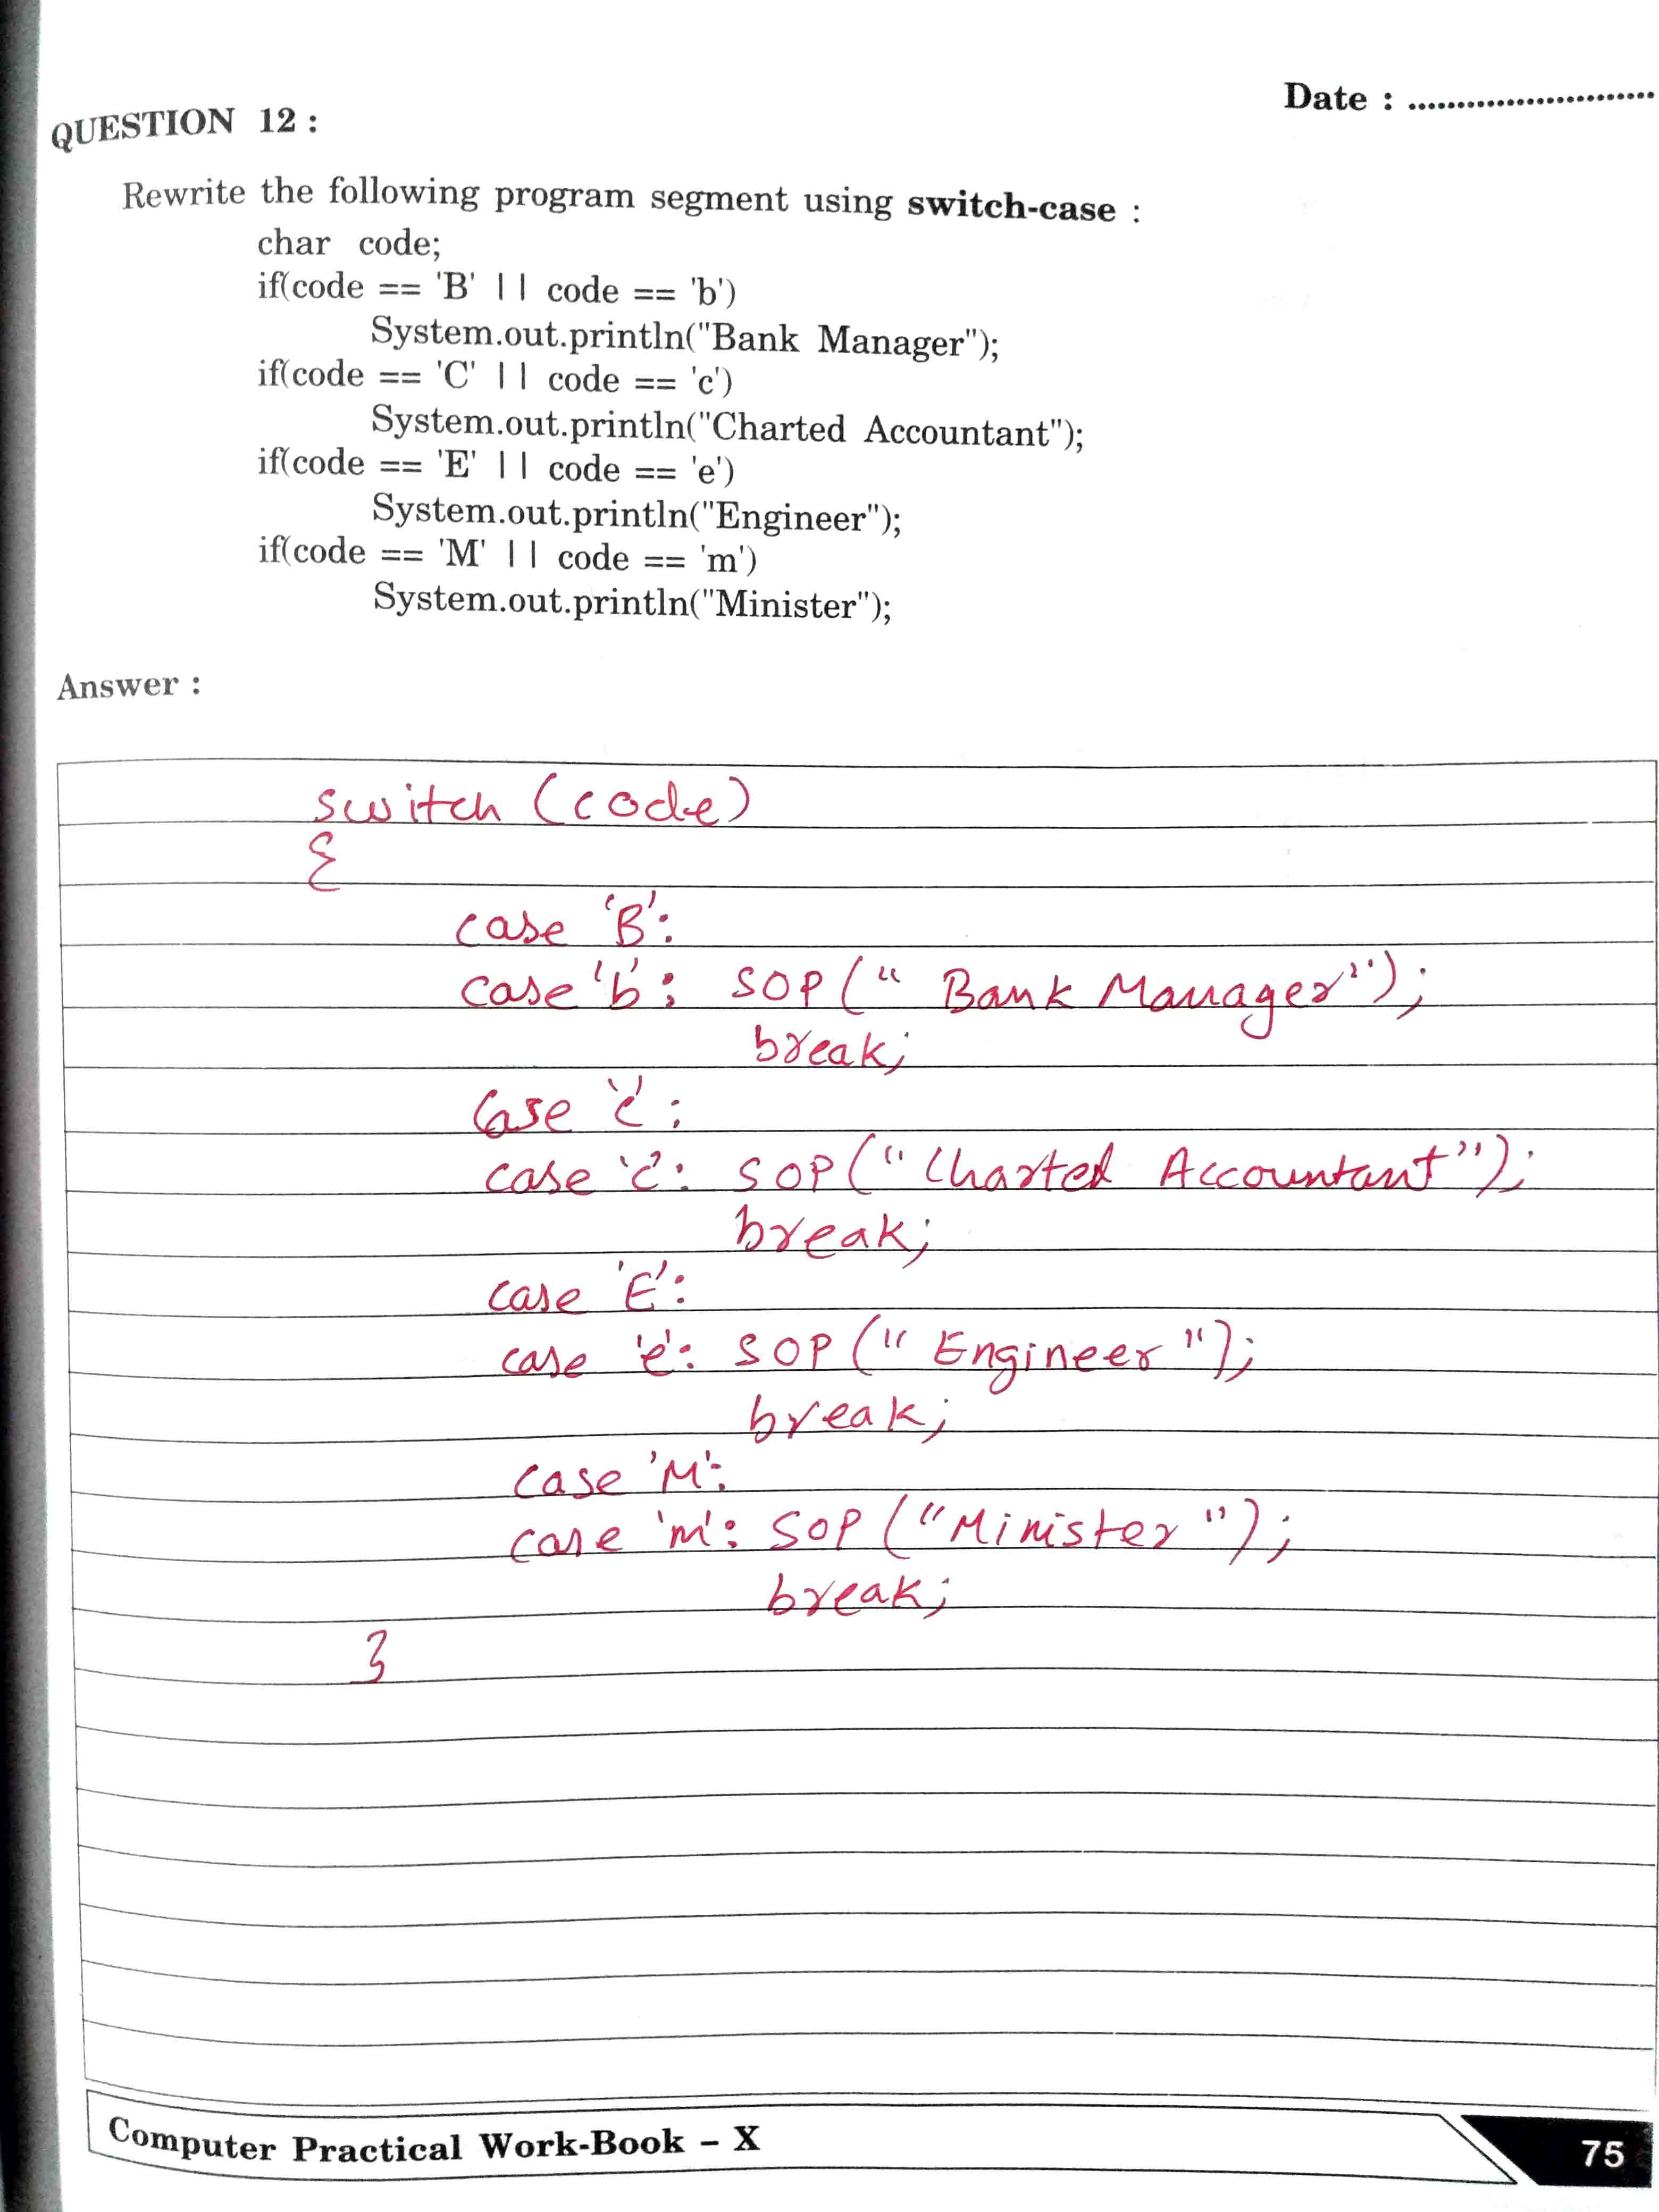 Date : ..........................
QUESTION 12 :
Rewrite the following program segment using switch-case :
char code;
if(code == 'B' || code == 'b')
System.out.println("Bank Manager");
if(code == 'C' || code == 'c')
System.out.println("Charted Accountant");
if(code == 'E' || code == 'e')
System.out.println("Engineer");
if(code == 'M' || code == 'm')
System.out.println("Minister");
Answer :
switch (code)
{
case 'B':
case 'b': SOP (" Bank Manager");
break;
case 'c' :
case 'c': SOP (" Charted Accountant");
break;
case 'E':
case 'e': SOP (" Engineer ");
break;
case 'M':
case 'm': SOP ("Minister ");
break;
}
Computer Practical Work-Book – X
75